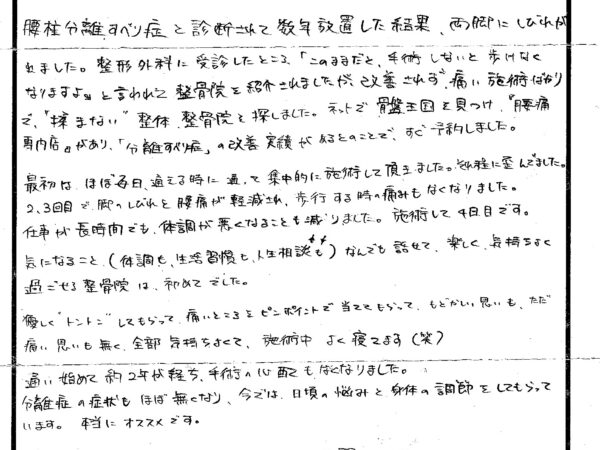 腰椎分離すべり症と診断されて数年放置した結果、両脚にしびれが
れました。整形外科に受診したところ「このままだと、手術しないと歩けなく
なりますよ」と言われて整骨院を紹介されましたが改善されず、痛い施術ばかり
で、"揉まない"整体、整骨院を探しました。ネットで骨盤王国を見つけ、『腰痛
専門店』があり、「分離すべり症」の改善実績があるとのことで、すぐ予約しました。
最初は、ほぼ毎日、通える時に通って集中的に施術して頂きました。それ程に歪んでました。
2、3回目で脚のしびれと腰痛が軽減され、歩行する時の痛みもなくなりました。
仕事が長時間でも、体調が悪くなることも減りました。施術して4日目です。
気になること、(体調も、生活習慣も、人生相談も)なんでも話せて、楽しく、気持ちよく
過ごせる整骨院は、初めてでした。
優しく"トントン"してもらって、痛いところをピンポイントで当ててもらって、もどかしい思いも、ただ
痛い思いも無く、全部気持ちよくて、施術中よく寝てます(笑)
通い始めて約2年が経ち、手術の心配もなくなりました。
分離症の症状もほぼ無くなり、今では、日頃の悩みと身体の調節をしてもらって
います。本当にオススメです。